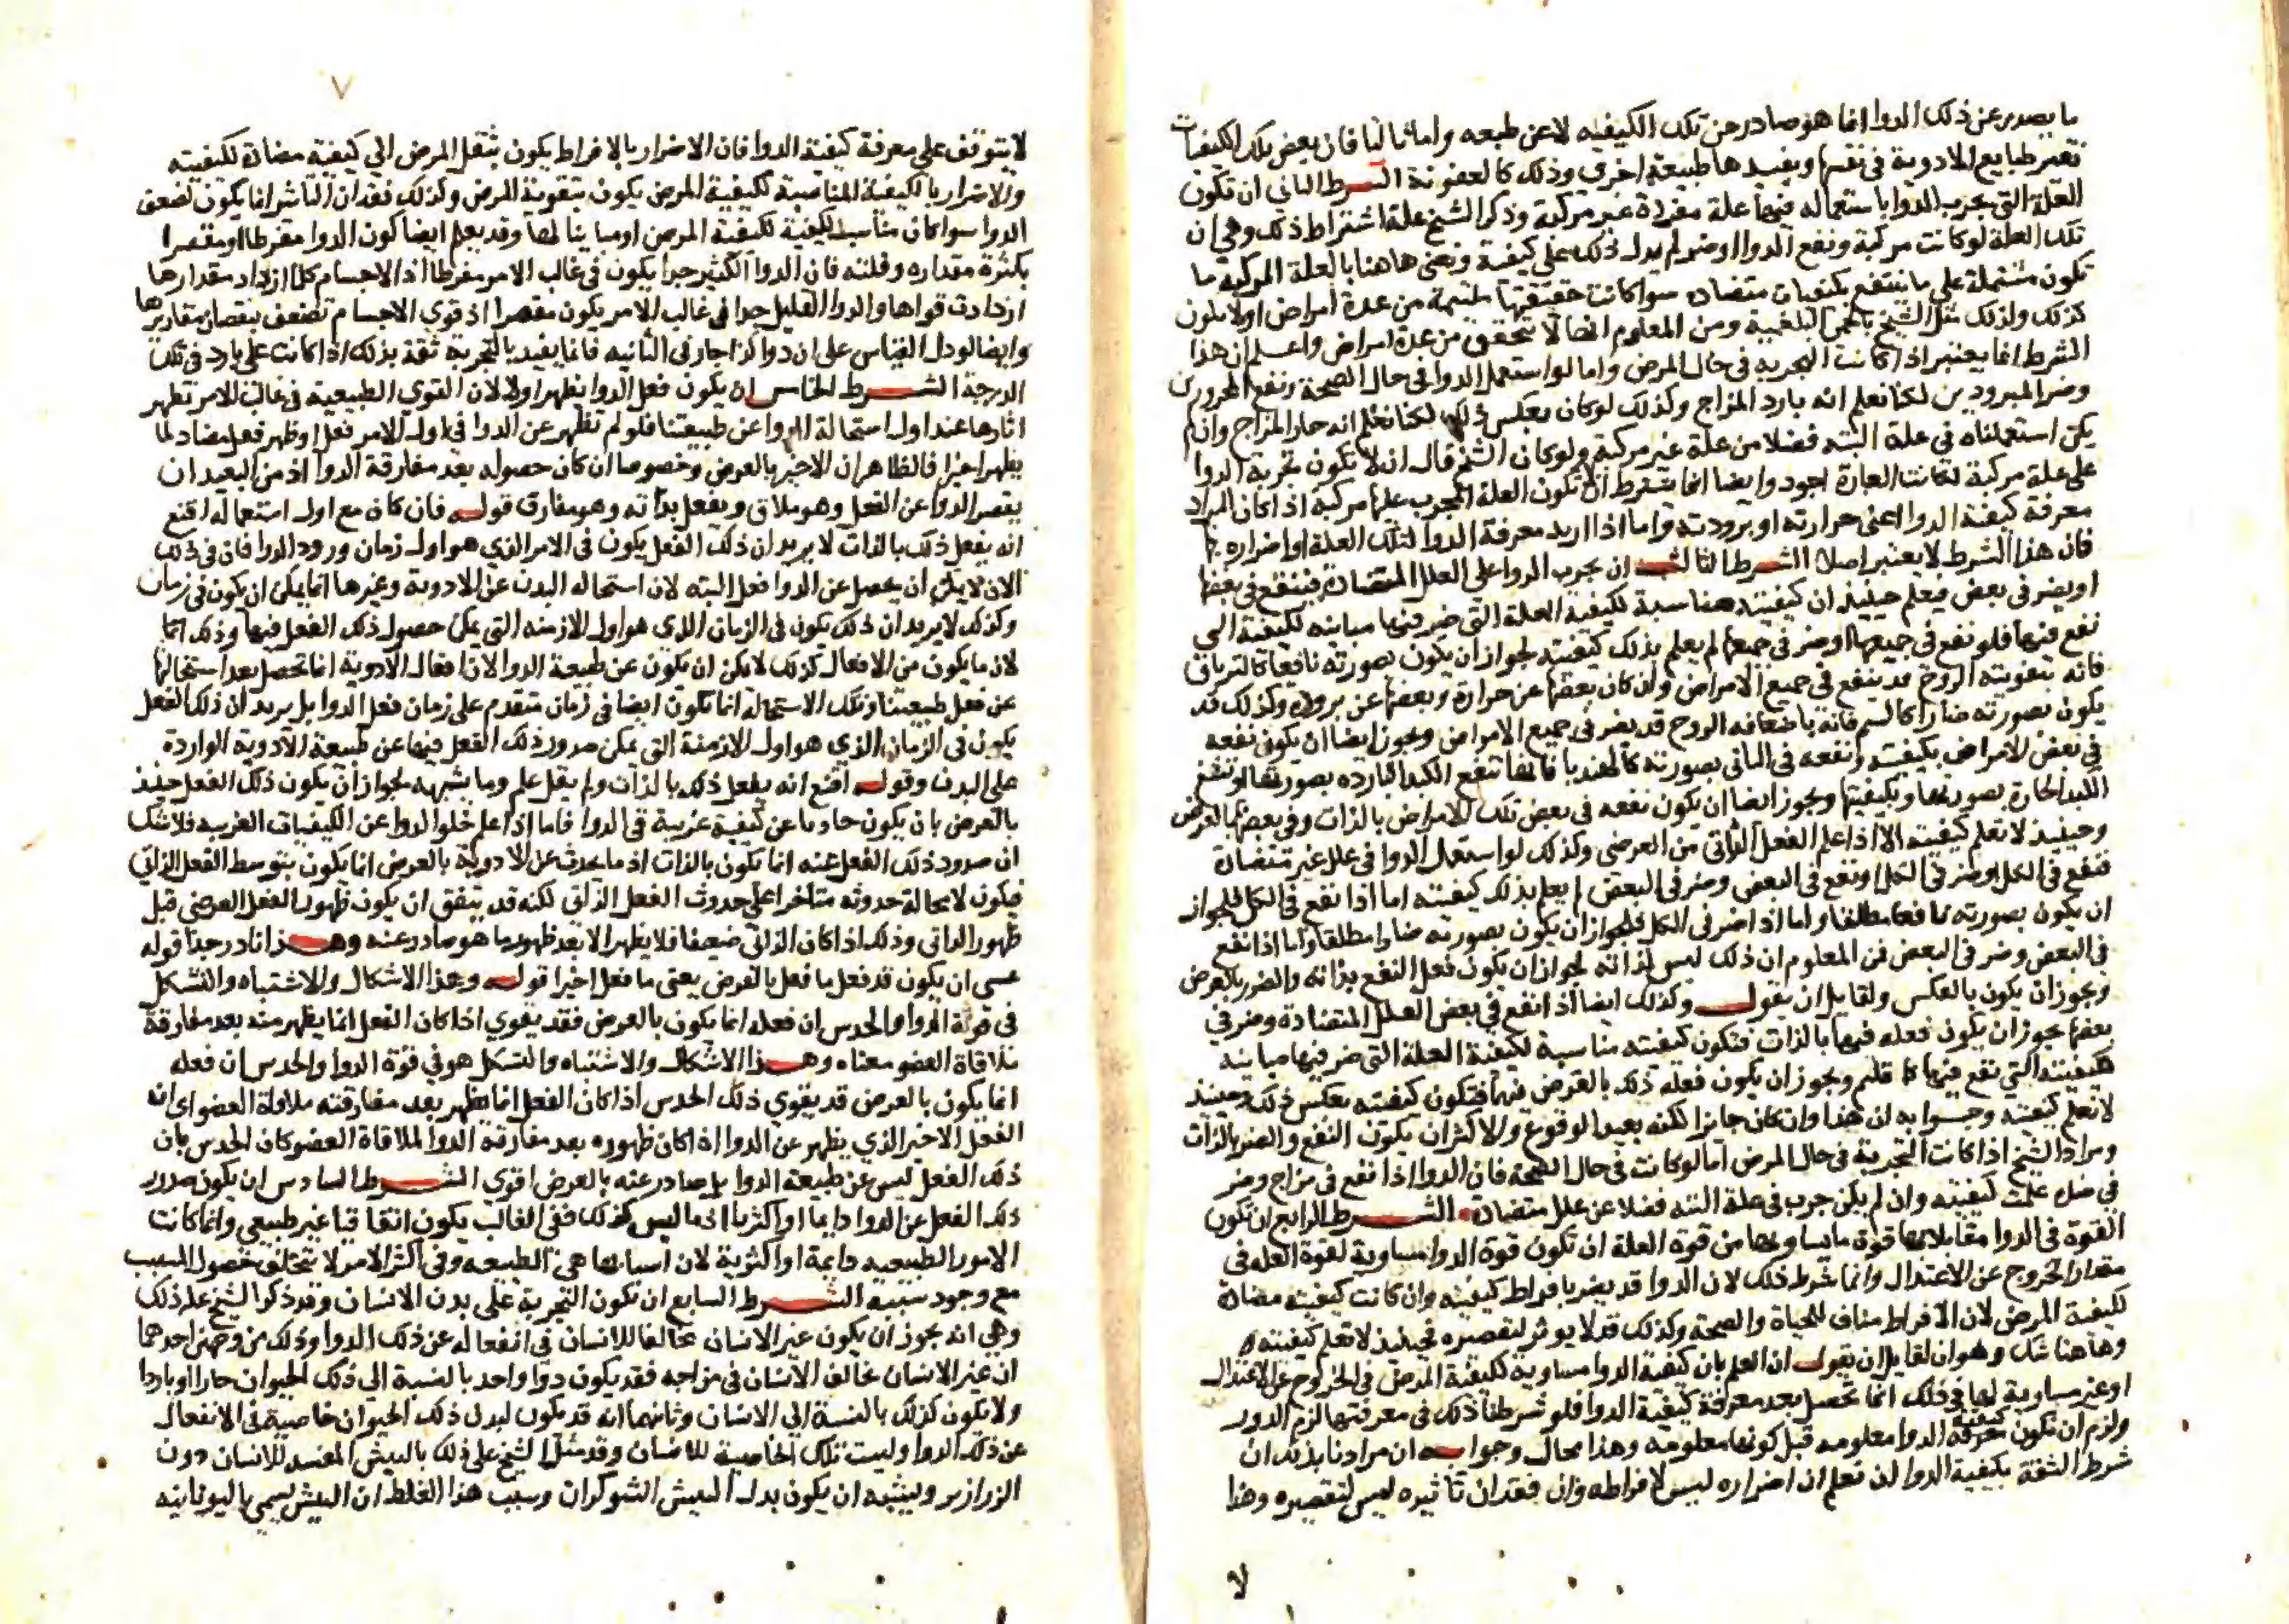 ما يصدر عن ذلك الدوا انما هو صادر عن تلك الكيفيه لا عن طبعه واما ثالثا فان بعض تلك الكيفيات
تغير طبايع الادوية في نفسها ويفيدها طبيعة اخرى وذلك كالعفونة الشرط الثانى ان تكون
العلة التي يجرب الدوا باستعماله فيها علة مفردة غير مركبة وذكر الشيخ علة اشتراط ذلك وهي ان
تلك العلة لو كانت مركبة ونفع الدوا او ضر لم يدل ذلك على كيفية ونعنى هاهنا بالعلة المركبة ما
تكون مشتملة على ما ينتفع بكيفيات متضاده سوا كانت حقيقتها ملتيمة من عدة امراض او لا يكون
كذلك ولذلك مثل الشيخ بالحمى البلغمية ومن المعلوم انها لا تتحقق من عدة امراض واعلم ان هذا
الشرط انما يعتبر اذا كانت التجربه في حال المرض واما لو استعمل الدوا في حال الصحة ونفع المحرورين
وضر المبرودين لكنا نعلم انه بارد المزاج وكذلك لو كان بعكس ذلك لكنا نعلم انه حار المزاج وان لم
يكن استعملناه في علة البته فضلا من علة غير مركبة ولو كان الشيخ قال انه لا تكون تجربة الدوا
على علة مركبة لكانت العبارة اجود وايضا انما يشترط ان لا تكون العلة المجرب عليها مركبة اذا كان المراد
معرفة كيفية الدوا اعنى حرارته او برودته واما اذا اريد معرفة الدوا لتلك العلة او اضراره بها
فان هذا الشرط لا يعتبر اصلا الشرط الثالث ان يجرب الدوا على العلل المتضادة فينفع في بعضها
او يضر في بعض فيعلم حينيذ ان كيفيته مناسبة لكيفية العلة التي ضر فيها مباينه لكيفية التي
نفع فيها فلو نفع في جميعها او ضر في جميعها لم يعلم بذلك كيفيته لجواز ان يكون بصورته نافعا كالترياق
فانه بتقويته الروح قد ينفع في جميع الامراض وان كان بعضها عن حرارة وبعضها عن برودة وكذلك قد
يكون بصورته ضارا كالسم فانه باضعافه الروح قد يضر في جميع الامراض ويجوز ايضا ان يكون نفعه
في بعض الامراض بكيفيته ونفعه في الثاني بصورته كالهندبا فانها تنفع الكبد البارده بصورتها وتنفع
الكبد الحارة بصورتها وبكيفيتها ويجوز ايضا ان يكون نفعه في بعض تلك الامراض بالذات وفي بعضها بالعرض
وحينيذ لا تعلم كيفيته الا اذا علم الفعل الذاتى من العرضى وكذلك لو استعمل الدوا في علل غير متضادة
فنفع في الكل او ضر في الكل او نفع في البعض وضر في البعض لم يعلم بذلك كيفيته اما اذا نفع في الكل فلجواز
ان يكون بصورته نافعا مطلقا واما اذا ضر في الكل فلجواز ان يكون بصورته ضارا مطلقا واما اذا نفع
في البعض وضر في البعض فمن المعلوم ان ذلك ليس لذاته لجواز ان يكون فعل النفع بذاته والضرر بالعرض
ويجوز ان يكون بالعكس ولقايل ان يقول وكذلك ايضا اذا نفع في بعض العلل المتضادة وضر في
بعضها يجوز ان يكون فعله فيها بالذات فتكون كيفيته مناسبة لكيفية العلة التي ضر فيها مباينه
لكيفيته التي نفع فيها كما قلتم ويجوز ان يكون فعله ذلك بالعرض فيها فتكون كيفيته بعكس ذلك وحينيذ
لا تعلم كيفيته وجوابه ان هذا وان كان جايزا لكنه بعيد الوقوع والاكثر ان يكون النفع والضرر بالذات
ومراد الشيخ اذا كانت التجربة في حال المرض اما لو كانت في حال الصحة فان الدوا اذا نفع في مزاج وضر
في ضده علمت كيفيته وان لم يكن جرب في علة البته فضلا عن علل متضادة الشرط الرابع ان تكون
القوة في الدوا مقابلا بها قوة ما يساويها من قوة العلة ان تكون قوة الدوا مساوية لقوة العله في
مقدار الخروج عن الاعتدال وانما شرط ذلك لان الدوا قد يضر بافراط كيفيته وان كانت كيفيته مضادة
لكيفية المرض لان الافراط مناف للحياة والصحة وكذلك قد لا يوثر لتقصيره فحينيذ لا تعلم كيفيته
وهاهنا شك وهو ان لقايل ان يقول ان العلم بان كيفية الدوا مساوية لكيفية المرض في الخروج عن الاعتدال
او غير مساوية لها في ذلك انما تحصل بعد معرفة كيفية الدوا فلو شرطنا ذلك في معرفتها لزم الدور
ولزم ان تكون معرفة كيفية الدوا معلومه قبل كونها معلومه وهذا محال وجوابه ان مرادنا بذلك ان
شرط الثقة بكيفية الدوا ان نعلم ان اضراره ليس لافراطه وان فقدان تاثيره ليس لتقصيره وهذا
لا
٧
لا يتوقف على معرفة كيفية الدوا فان الاضرار بالافراط يكون بنقل المرض الي كيفية مضادة لكيفيته
والاضرار بالكيفية المناسبة لكيفية المرض يكون بتقوية المرض وكذلك فقدان التاثير انما يكون لضعف
الدوا سوا كان مناسب الكيفية لكيفية المرض او مباينا لها وقد يعلم ايضا كون الدوا مفرطا او مقصرا
بكثرة مقداره وقلته فان الدوا الكثير جدا يكون في غالب الامر مفرطا اذ الاجسام كلما ازداد مقدارها
ازدادت قواها والدوا القليل جدا في غالب الامر يكون مقصرا اذ قوي الاجسام تضعف بنقصان مقاديرها
وايضا لو دل القياس على ان دوا كذا حار في الثانيه فانما يفيد بالتجربة ثقة بذلك اذا كانت على بارد في تلك
الدرجة الشرط الخامس ان يكون فعل الدوا يظهر اولا لان القوي الطبيعية في غالب الامر تظهر
اثارها عند اول استحالة الدوا عن طبيعتنا فلو لم تظهر عن الدوا في اول الامر فعل او ظهر فعل مضاد لما
يظهر اخيرا فالظاهر ان الاخير بالعرض وخصوصا ان كان حصوله بعد مفارقة الدوا اذ من البعيد ان
يقصر الدوا عن الفعل وهو ملاق ويفعل بذاته وهو مفارق قوله فان كان مع اول استعماله اقنع
انه يفعل ذلك بالذات لا يريد ان ذلك الفعل يكون في الامر الذي هو اول زمان ورود الدوا فان في ذلك
الان لا يمكن ان يحصل عن الدوا فعل البته لان استحاله البدن عن الادوية وغيرها انما يمكن ان يكون في زمان
وكذلك لا يريد ان ذلك يكون في الزمان الذي هو اول الازمنه التي يمكن حصول ذلك الفعل فيها وذلك انما
لان ما يكون من الافعال كذلك لا يمكن ان يكون عن طبيعة الدوا لان افعال الادوية انما تحصل بعد استحالتها
عن فعل طبيعتنا وتلك الاستحالة انما تكون ايضا في زمان متقدم على زمان فعل الدوا بل يريد ان ذلك الفعل
يكون في الزمان الذي هو اول الازمنة التي يمكن صدور ذلك الفعل فيها عن طبيعة الادوية الواردة
على البدن وقوله اقنع انه يفعل ذلك بالذات ولم يقل علم وما يشبهه لجواز ان يكون ذلك الفعل حينيذ
بالعرض بان يكون حادثا عن كيفية غريبة في الدوا فاما اذا علم خلو الدوا عن الكيفيات الغريبه فلا شك
ان صدور ذلك الفعل عنه انما يكون بالذات اذ ما يحدث عن الادوية بالعرض انما يكون بتوسط الفعل الذاتي
فيكون لا محالة حدوثه متاخرا على حدوث الفعل الذاتي لكنه قد يتفق ان يكون ظهور الفعل العرضي قبل
ظهور الذاتي وذلك اذا كان الذاتي ضعيفا فلا يظهر الا بعد ظهور ما هو صادر عنه وهذا نادر جدا قوله
عسى ان يكون قد فعل ما فعل بالعرض يعنى ما فعل اخيرا قوله وهذا الاشكال والاشتباه والتشكل
في قوة الدوا والحدس ان فعله انما يكون بالعرض فقد يقوي اذا كان الفعل انما يظهر منه بعد مفارقة
ملاقاة العضو معناه وهذا الاشكال والاشتباه والتشكل هو في قوة الدوا والحدس ان فعله
انما يكون بالعرض قد يقوي ذلك الحدس اذا كان الفعل انما يظهر بعد مفارقته ملاقاة العضو اي ان
الفعل الاخير الذي يظهر عن الدوا اذا كان ظهوره بعد مفارقة الدوا لملاقاة العضو كان الحدس بان
ذلك الفعل ليس عن طبيعة الدوا بل صادر عنه بالعرض اقوي الشرط السادس ان يكون صدور
ذلك الفعل عن الدوا دايما او اكثريا اذ ما ليس كذلك ففي الغالب يكون اتفاقيا غير طبيعي وانما كانت
الامور الطبيعيه دايمة او اكثرية لان اسبابها هي الطبيعه وفي اكثر الامر لا تتخلف حصول المسبب
مع وجود سببه الشرط السابع ان تكون التجربة على بدن الانسان وقد ذكر الشيخ علة ذلك
وهي انه يجوز ان يكون غير الانسان مخالفا للانسان في انفعاله عن ذلك الدوا وذلك من وجهين احدهما
ان غير الانسان مخالف الانسان في مزاجه فقد يكون دوا واحد بالنسبة الي ذلك الحيوان حارا او باردا
ولا يكون كذلك بالنسبة الي الانسان وثانيهما انه قد يكون لبدن ذلك الحيوان خاصية في الانفعال
عن ذلك الدوا وليست تلك الخاصية للانسان وقد مثل الشيخ على ذلك بالبيش المفسد للانسان دون
الزرازير ويشبه ان يكون بدل البيش الشوكران وسبب هذا الغلط ان البيش يسمي باليونانيه